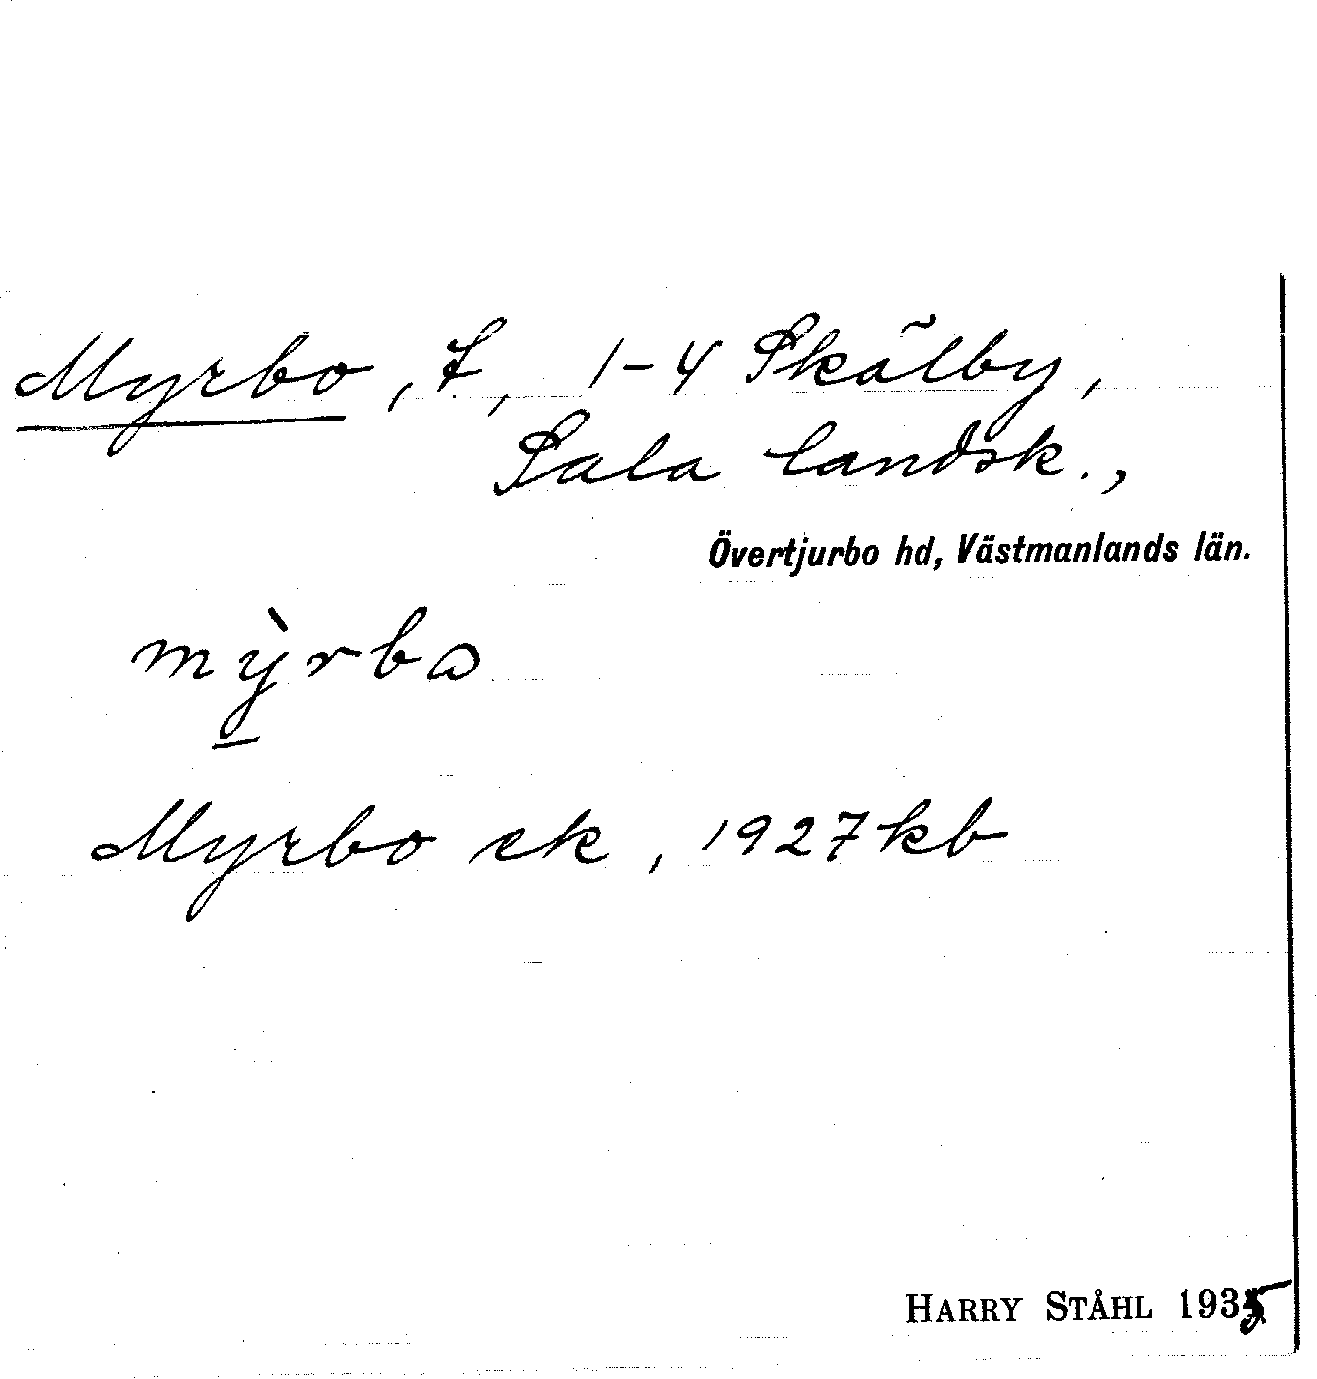 Myrbo, t., 1-4 Skälby,
Sala landsk.,
Övertjurbo hd, Västmanlands län.
mỳrbω
Myrbo ek, 1927 kb
HARRY STÅHL 1935